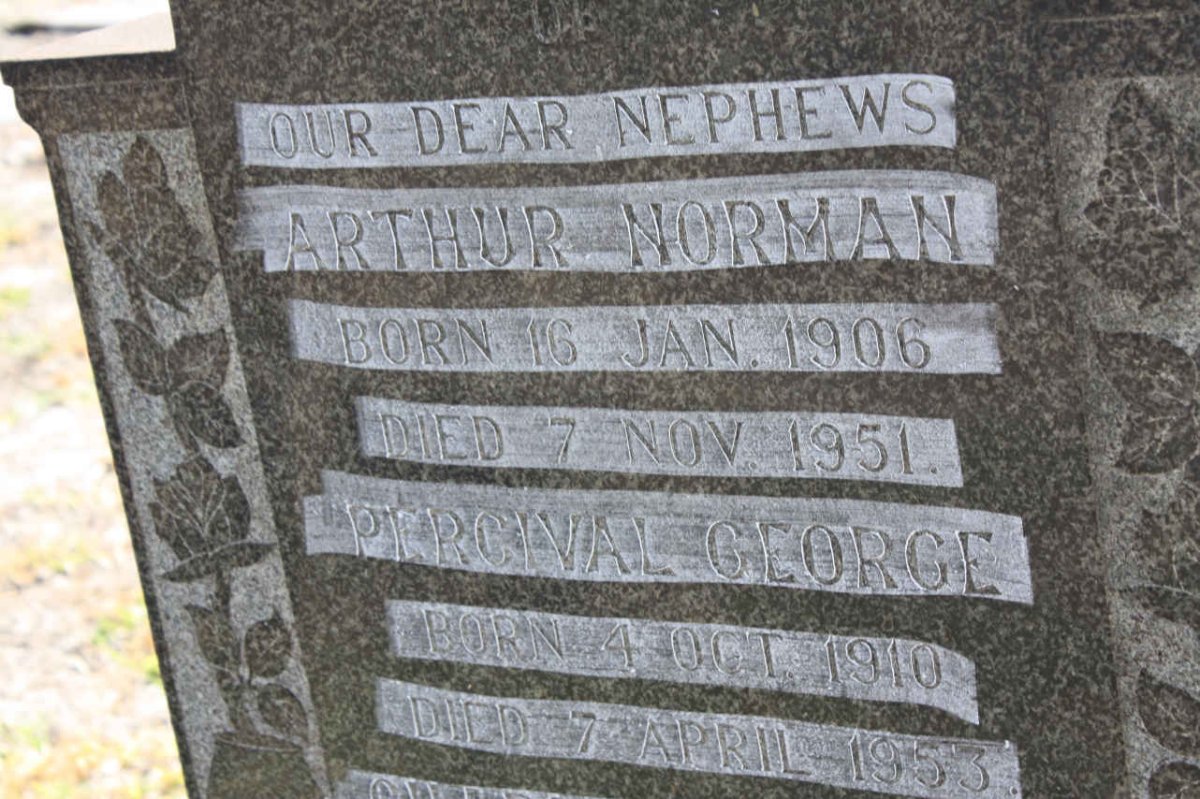 OF
OUR DEAR NEPHEWS
ARTHUR NORMAN
BORN 16 JAN. 1906
DIED 7 NOV. 1951.
PERCIVAL GEORGE
BORN 4 OCT. 1910
DIED 7 APRIL 1953.